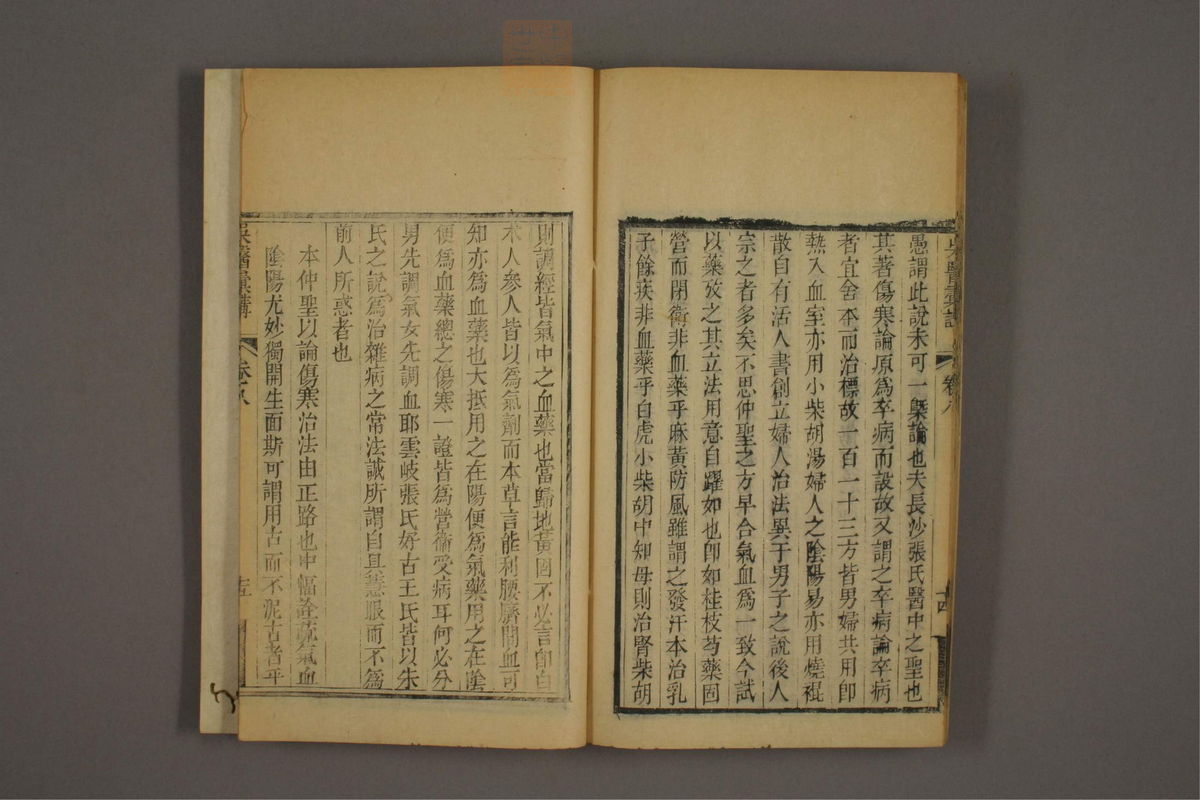 愚謂此說未可一槩論也夫長沙張氏醫中之聖也
其著傷寒論原爲卒病而設故又謂之卒病論卒病
者宜舍本而治標故一百一十三方皆男婦共用卽
熱入血室亦用小柴胡湯婦人之陰陽易亦用燒裩
散自有活人書創立婦人治法異于男子之說後人
宗之者多矣不思仲聖之方早合氣血爲一致今試
以藥攷之其立法用意自躍如也卽如桂枝芍藥固
營而閉衛非血藥乎麻黃防風雖謂之發汗本治乳
子餘疾非血藥乎白虎小柴胡中知母則治腎柴胡
吳醫彙講 卷八 十四
則調經皆氣中之血藥也當歸地黃固不必言卽白
朮人參人皆以爲氣劑而本草言能利腰臍間血可
知亦爲血藥也大抵用之在陽便爲氣藥用之在陰
便爲血藥總之傷寒一證皆爲營衛受病耳何必分
男先調氣女先調血耶雲岐張氏好古王氏皆以朱
氏之說爲治雜病之常法誠所謂自具慧眼而不爲
前人所惑者也
本仲聖以論傷寒治法由正路也中幅詮疏氣血
陰陽尤妙獨開生面斯可謂用古而不泥古者乎
吳醫彙講 卷八